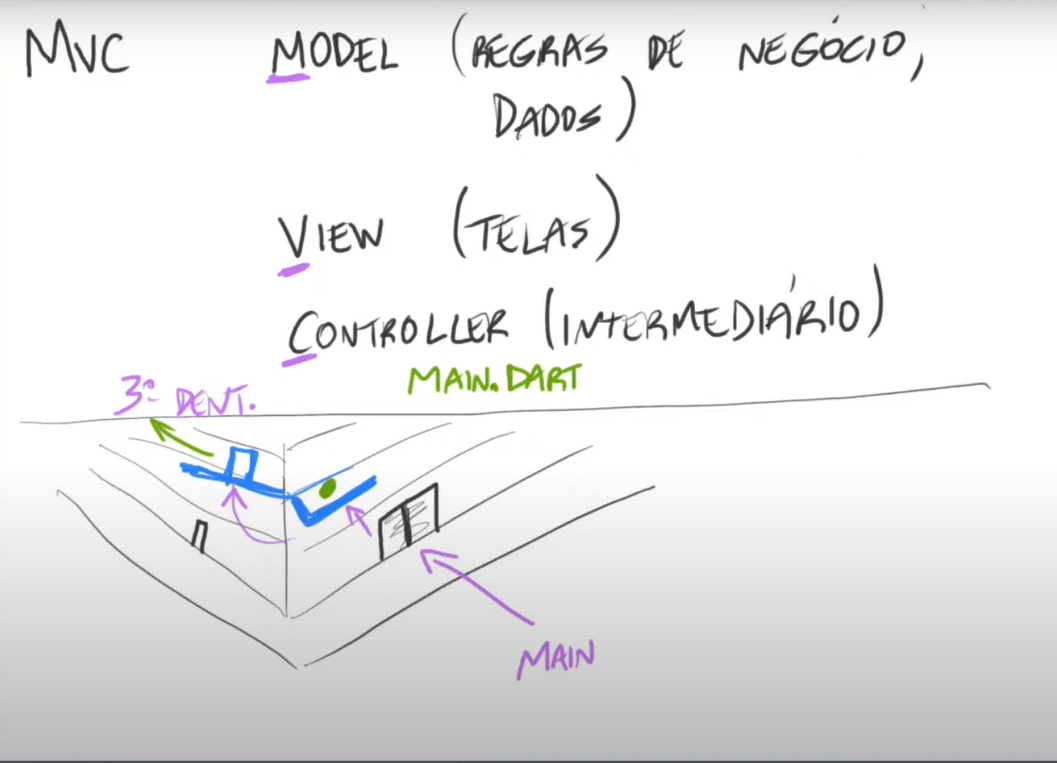 MVC MODEL (REGRAS DE NEGÓCIO,
DADOS)
VIEW (TELAS)
CONTROLLER (INTERMEDIÁRIO)
MAIN.DART
3º DENT.
MAIN